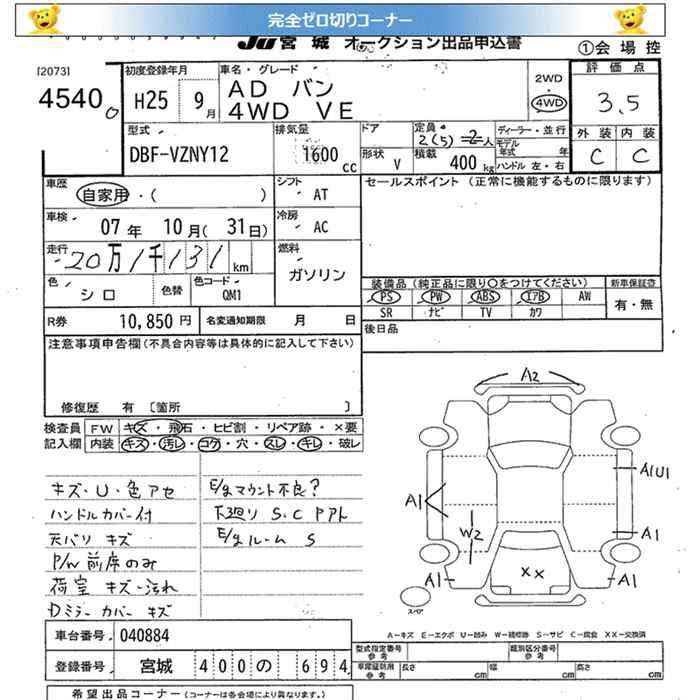 完全ゼロ切りコーナー
JU 宮城 オークション出品申込書
①会場控
[2073]
4540
初度登録年月
H25 9月
車名・グレード
AD バン
4WD VE
2WD
4WD
評価点
3.5
外装 内装
C C
型式
DBF-VZNY12
排気量
1600cc
ドア
形状 V
定員
2(5)=2人
積載 400kg
ディーラー・並行
モデル年式 年
ハンドル 左・右
車歴
自家用・( )
シフト AT
セールスポイント (正常に機能するものに限ります)
車検
07年 10月(31日)
冷房 AC
走行
20万1千131km
燃料
ガソリン
色
シロ
色替
色コード
QM1
装備品(純正品に限り○をつけてください)
新車保証書
PS PW ABS エアB AW
有・無
SR ナビ TV カワ
R券 10,850円
名変通知期限 月 日
後日品
注意事項申告欄(不具合内容等は具体的に記入して下さい)
修復歴 有 〔箇所 〕
検査員記入欄
FW キズ・飛石・ヒビ割・リペア跡・×要
内装 キズ・汚レ・コゲ・穴・スレ・キレ・破レ
キズ・U・色アセ
ハンドルカバー付
天バリ キズ
P/W 前席のみ
荷室 キズ・汚れ
Dミラーカバー キズ
E/gマウント不良?
下廻り S.C Pアト
E/gルーム S
A2
A1U1
A1
A1
W2
A1
××
A1
スペア
A-キズ E-エクボ U-凹み W-補修跡 S-サビ C-腐食 XX-交換済
車台番号 040884
型式指定番号 参考
類別区分番号 参考
登録番号 宮城 400 の 694
車庫証明用 参考
長さ cm 幅 cm 高さ cm
希望出品コーナー (コーナーは各会場により異なります。)